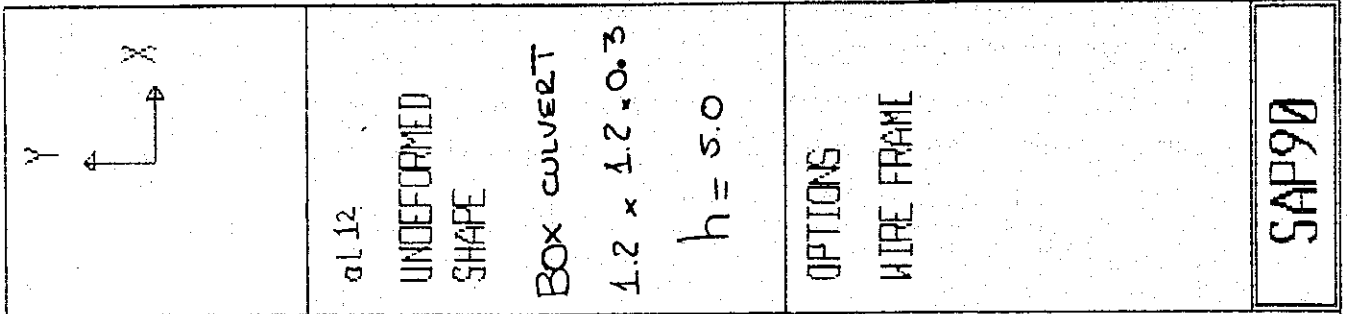 Y
X
al12
UNDEFORMED
SHAPE
BOX CULVERT
1.2 x 1.2 x 0.3
h = 5.0
OPTIONS
WIRE FRAME
SAP90